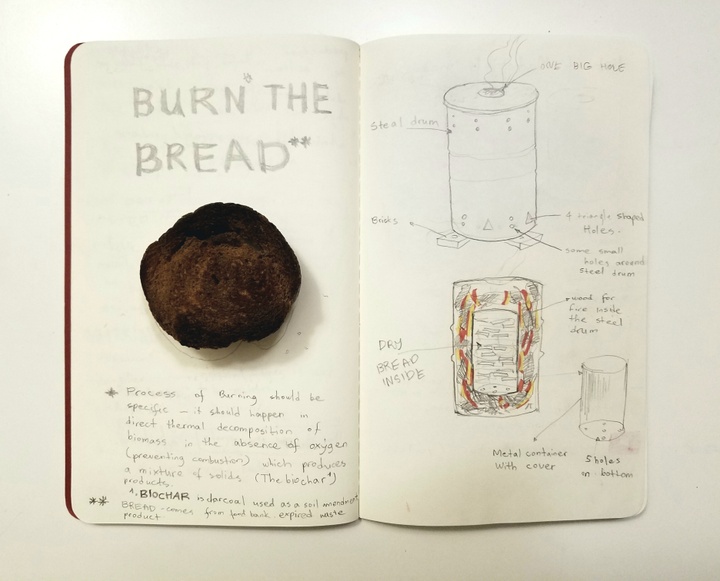 BURN* THE
BREAD**
* Process of Burning should be
specific – it should happen in
direct thermal decomposition of
biomass in the absence of oxygen
(preventing combustion) which produces
a mixture of solids (The biochar¹)
products.
1. BIOCHAR is charcoal used as a soil amendment
** BREAD - comes from food bank. expired waste
product
ONE BIG HOLE
Steal drum
Bricks
4 triangle shaped
Holes.
some small
holes around
steel drum
wood for
fire inside
the steel
drum
DRY
BREAD
INSIDE
Metal container
With cover
5 holes
in bottom